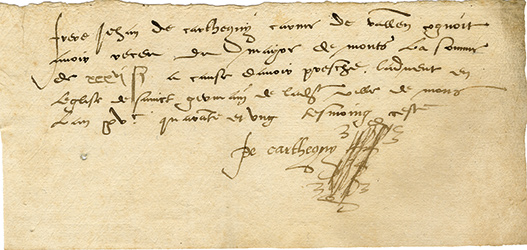 frere Jehan de carthegny carme de vallen cognoit
avoir receu du mayor de mons La somme
de xxxvj s a cause davoir presche ladvent en
leglise de sainct germain de ladt ville de mons
Lan xvc quarante et ung tesmoing ceste
De carthegny